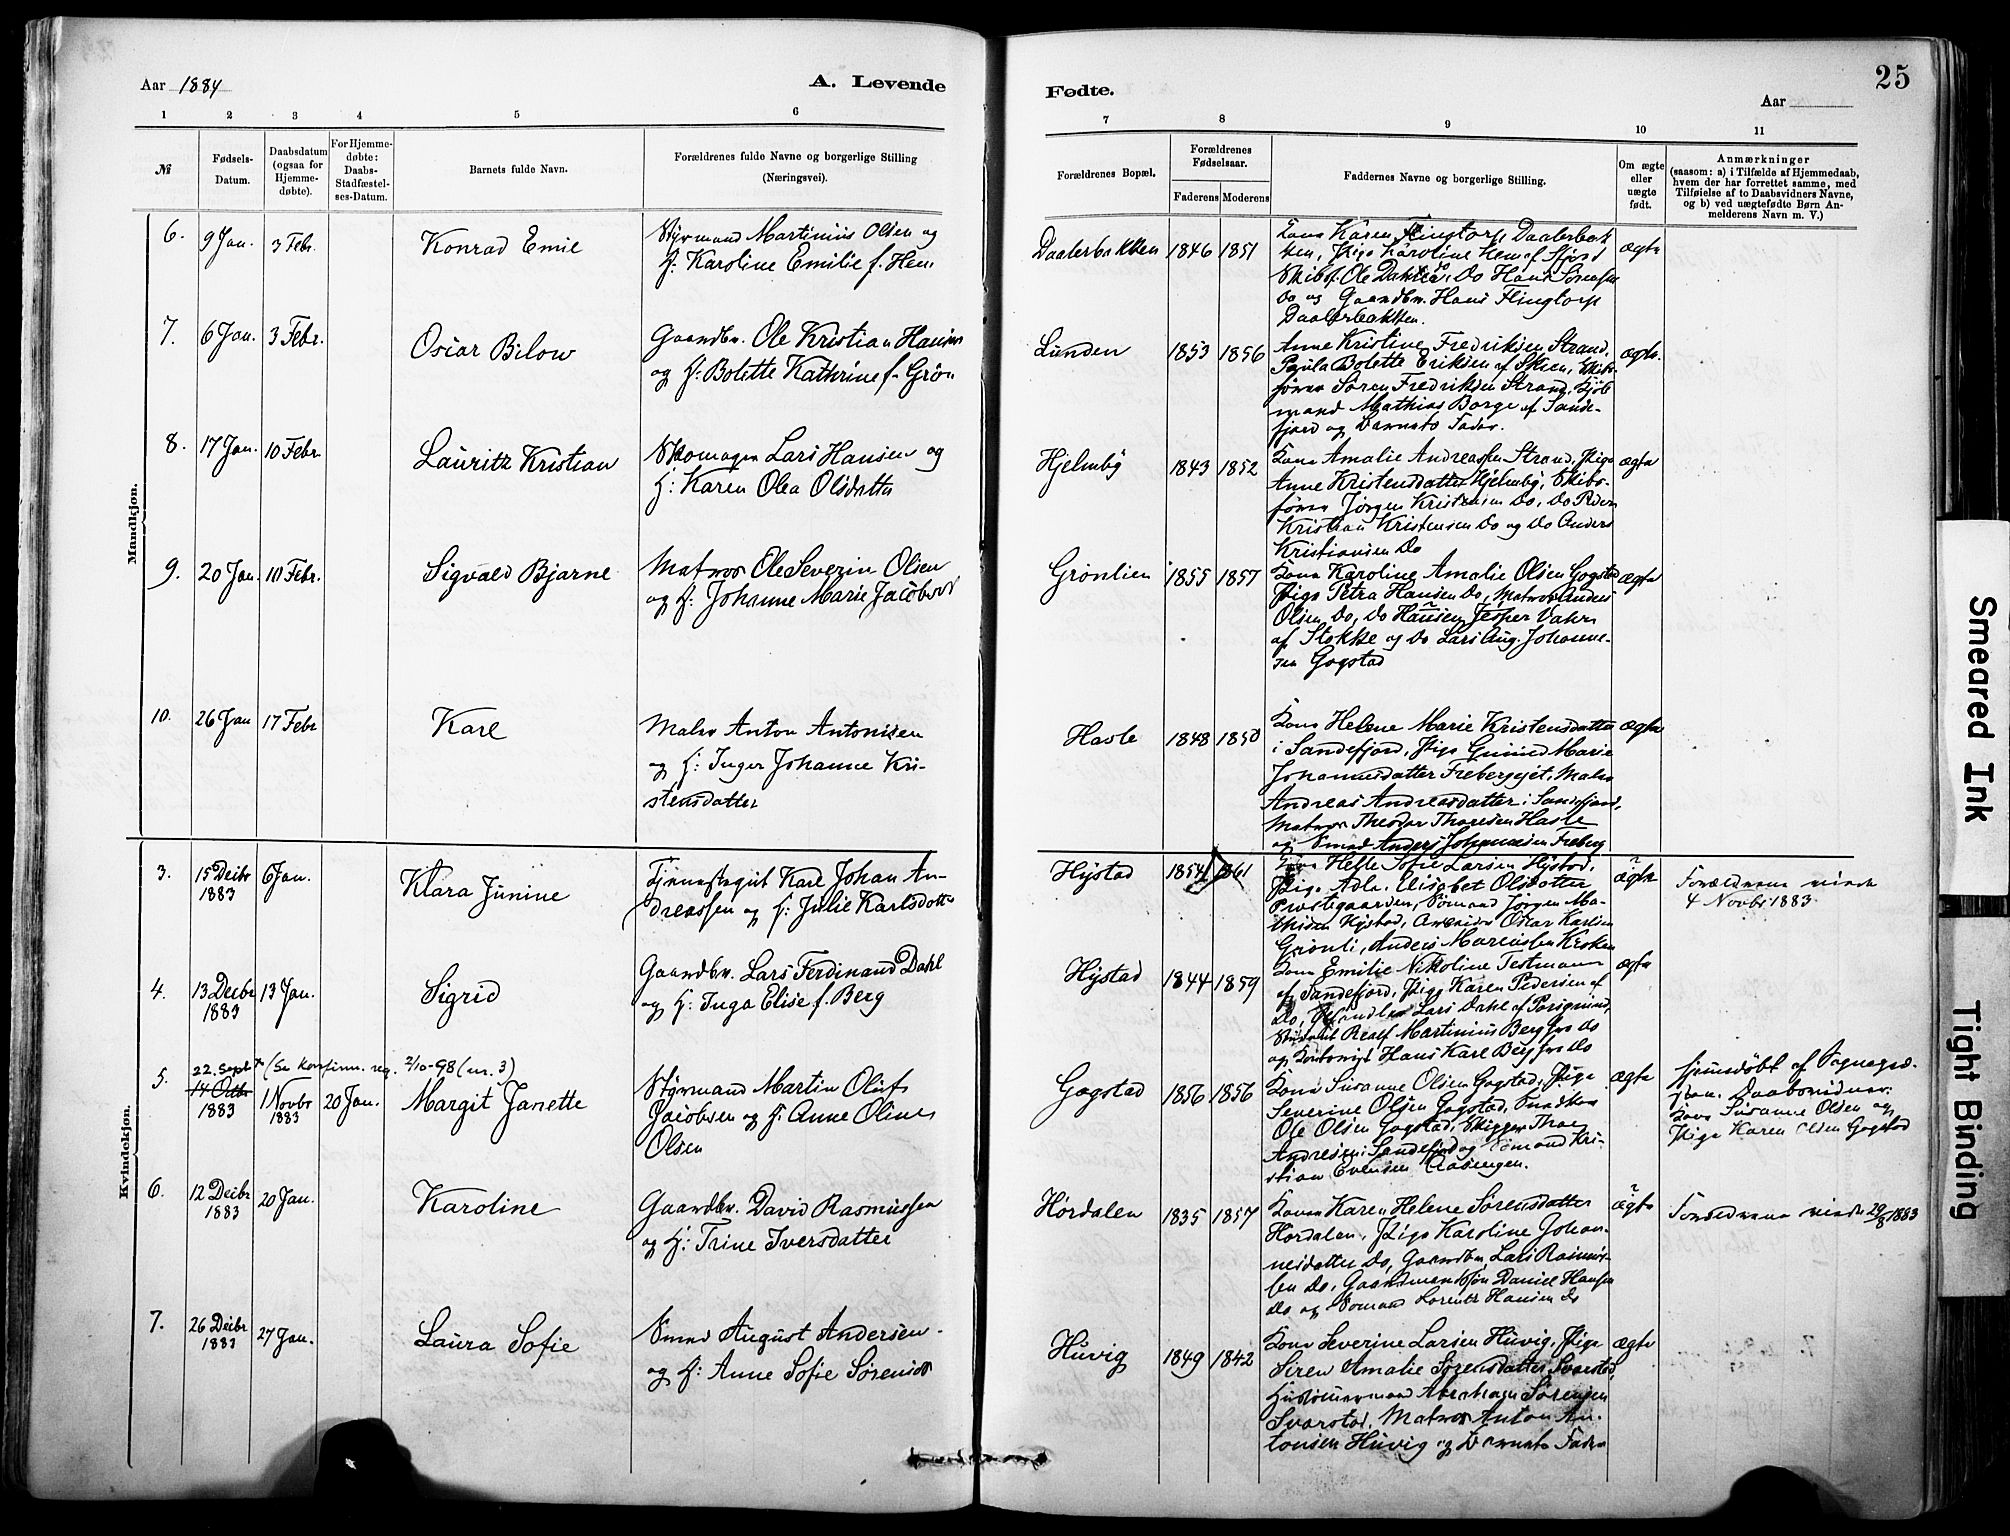 Aar 1884
A. Levende
Fødte.
25
Aar
1 2 3 4 5 6 7 8 9 10 11
№
Fødsels-
Datum.
Daabsdatum
(ogsaa for
Hjemme-
døbte).
For Hjemme-
døbte:
Daabs-
Stadfæstel-
ses-Datum.
Barnets fulde Navn.
Forældrenes fulde Navne og borgerlige Stilling
(Næringsvei).
Forældrenes Bopæl.
Forældrenes
Fødselsaar.
Faderens Moderens
Faddernes Navne og borgerlige Stilling.
Om ægte
eller
uægte
født.
Anmærkninger
(saasom: a) i Tilfælde af Hjemmedaab,
hvem der har forrettet samme, med
Tilføielse af to Daabsvidners Navne,
og b) ved uægtefødte Børn An-
melderens Navn m. V.)
Mandkjøn.
6. 9 Jan. 3 Febr. Konrad Emil
Styrmand Martinius Olsen og
h: Karoline Emilie f. Hem
Daalerbakken 1846 1851
Kona Karen Flingtorp Daalerbak
ken, Pige Karoline Hem af
Skibsf. Ole Dahl, Do Hans Sørensen
Do og Gaardbr. Hans Flingtorp
Daalerbakken.
ægte
7. 6 Jan. 3 Febr. Oscar Bilow
Gaardbr. Ole Kristian Hansen
og h: Bolette Kathrine f. Grøn
Lunden 1853 1856
Anne Kristine Fredriksen Strand.
Paula Bolette Eriksen af Skien, Skibs-
fører Søren Fredriksen Strand, Kjøb
mand Mathias Borge af Sande-
fjord og Barnets Fader.
ægte
8. 17 Jan. 10 Febr. Lauritz Kristian
Skomager Lars Hansen og
h: Karen Olea Olsdatter
Hjelmbý 1843 1852
Kona Amalie Andreassen Strand, Pige
Anne Kristensdatter Hjelmbý, Skibs-
fører Jørgen Kristensen Do, Do Peder
Kristian Kristensen Do og Do Anders
Kristiansen Do
ægte
9. 20 Jan. 10 Febr. Sigvald Bjarne
Matros Ole Severin Olsen
og h: Johanne Marie Jacobsd
Grønlien 1855 1857
Kona Karoline Amalie Olsen Gogstad
Pige Petra Hansen Do, Matros Anders
Olsen Do, Do Hansen Jesper
af Stokke og Do Lars Aug. Johanne-
sen Gogstad
ægte
10. 26 Jan 17 Febr Karl
Maler Anton Antonisen
og h: Inger Johanne Kri-
stensdatter
Hasle 1848 1850
Kona Helene Marie Kristensdatter
i Sandefjord, Pige Gunild Marie
Johannesdatter Frebergejet, Maler
Andreas Andreasdatter i Sandefjord,
Matros Theodor Thoresen Hasle
og Smed Anders Johannesen Freberg
ægte
Kvindekjøn.
3. 15 Decbr 1883 6 Jan. Klara Junine
Karl Johan An-
dreassen og h: Julie Karlsdotter
Hýstad 1854 1861
Kona Helle Sofie Larsen Hýstad,
Pige Adla Elisabet Olsdatter
Prestegaarden, Sømand Jørgen Ma-
thisen Hýstad, Arbeider Oscar Karlsen
Grønli, Anders
ægte
Forældrene viede
4 Novbr 1883.
4. 13 Decbr 1883 13 Jan. Sigrid
Gaardbr. Lars Ferdinand Dahl
og h: Inga Elise f. Berg
Hýstad 1844 1859
Kona Emilie Nikoline Testmann
af Sandefjord, Pige Karen Pedersen af
Do, Handler Lars Dahl af Porsgrund,
Student Realf Martinius Berg fra Do
og Kontorist Hans Karl Berg fra Do
ægte
5. 22. Sept (Se konfirm. reg. 2/10-98 (nr. 3)
14 Octbr 1883 1 Novbr 1883 20 Jan. Margit Janette
Styrmand Martin Oluf
Jacobsen og h: Anne Oline
Olsen
Gogstad 1856 1856
Kona Susanne Olsen Gogstad, Pige
Severine Olsen Gogstad, Snedker
Ole Olsen Gogstad, Skipper Thor
Andresen i Sandefjord og Sømand Kri-
stian Evensen Aasengen.
ægte
Hjemdøbt af Sognepræ-
sten. Daabsvidner:
Kona Susanne Olsen og
Pige Karen Olsen Gogstad
6. 12 Decbr 1883 20 Jan. Karoline
Gaardbr. David Rasmussen
og h: Trine Iversdatter
Hørdalen 1835 1857
Kona Karen Helene Sørensdatter
Hørdalen, Pige Karoline Johan-
nesdatter Do, Gaardbr. Lars Rasmus-
sen Do, Gaardmandssøn Daniel Hansen
Do og Sømand Lorentz Hansen Do
ægte
Forældrene viede 29/8 1883
7. 26 Decbr 1883 27 Jan. Laura Sofie
Smed August Andersen
og h: Anne Sofie Sørensdt
Huvig 1849 1842
Kona Severine Larsen Huvig, Pige
Siren Amalie Sørensdatter Svarstad,
Abraham Sørensen
Svarstad, Matros Anton An-
tonsen Huvig og Barnets Fader
ægte
Smeared Ink
Tight Binding